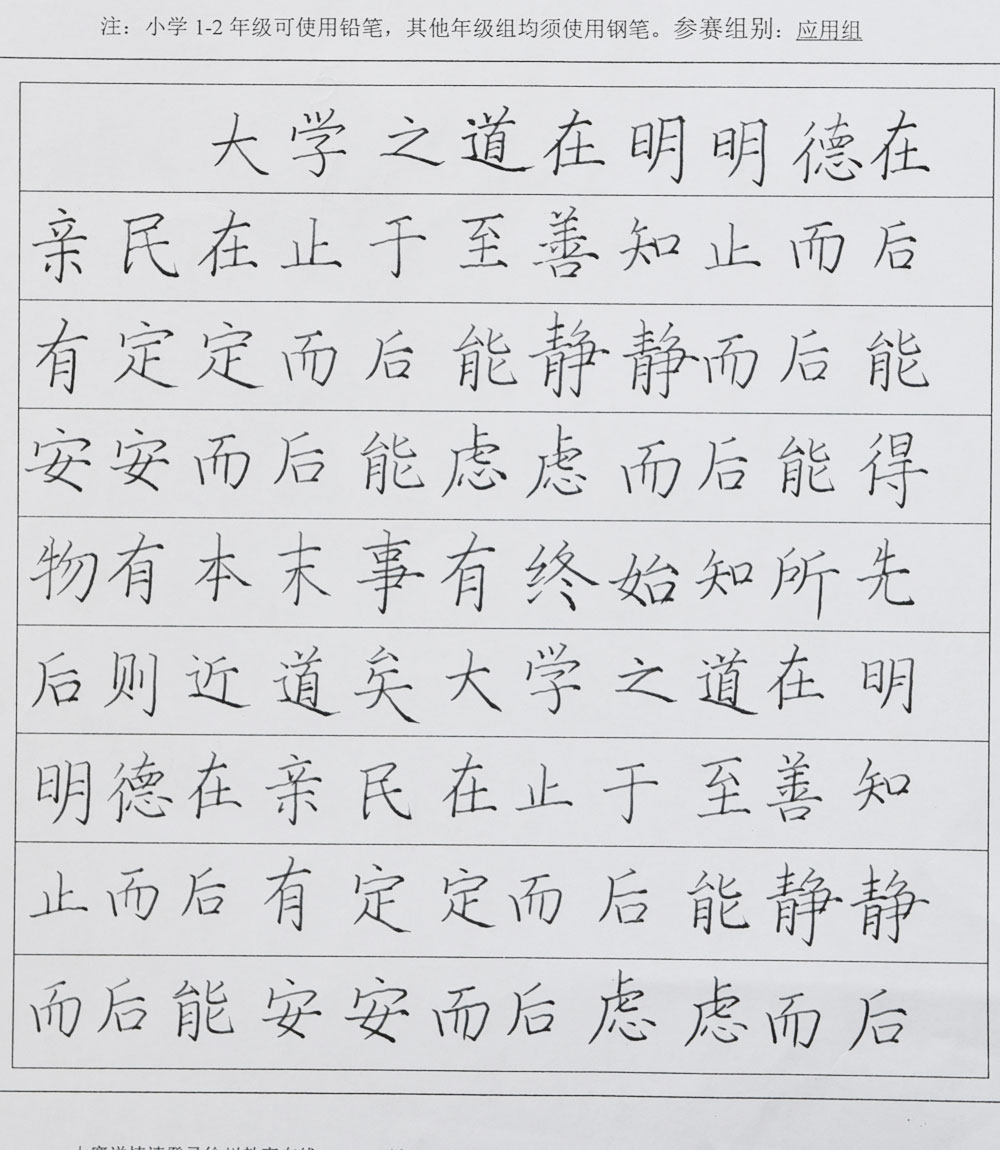 注：小学 1-2 年级可使用铅笔，其他年级组均须使用钢笔。参赛组别：应用组
大学之道在明明德在
亲民在止于至善知止而后
有定定而后能静静而后能
安安而后能虑虑而后能得
物有本末事有终始知所先
后则近道矣大学之道在明
明德在亲民在止于至善知
止而后有定定而后能静静
而后能安安而后虑虑而后